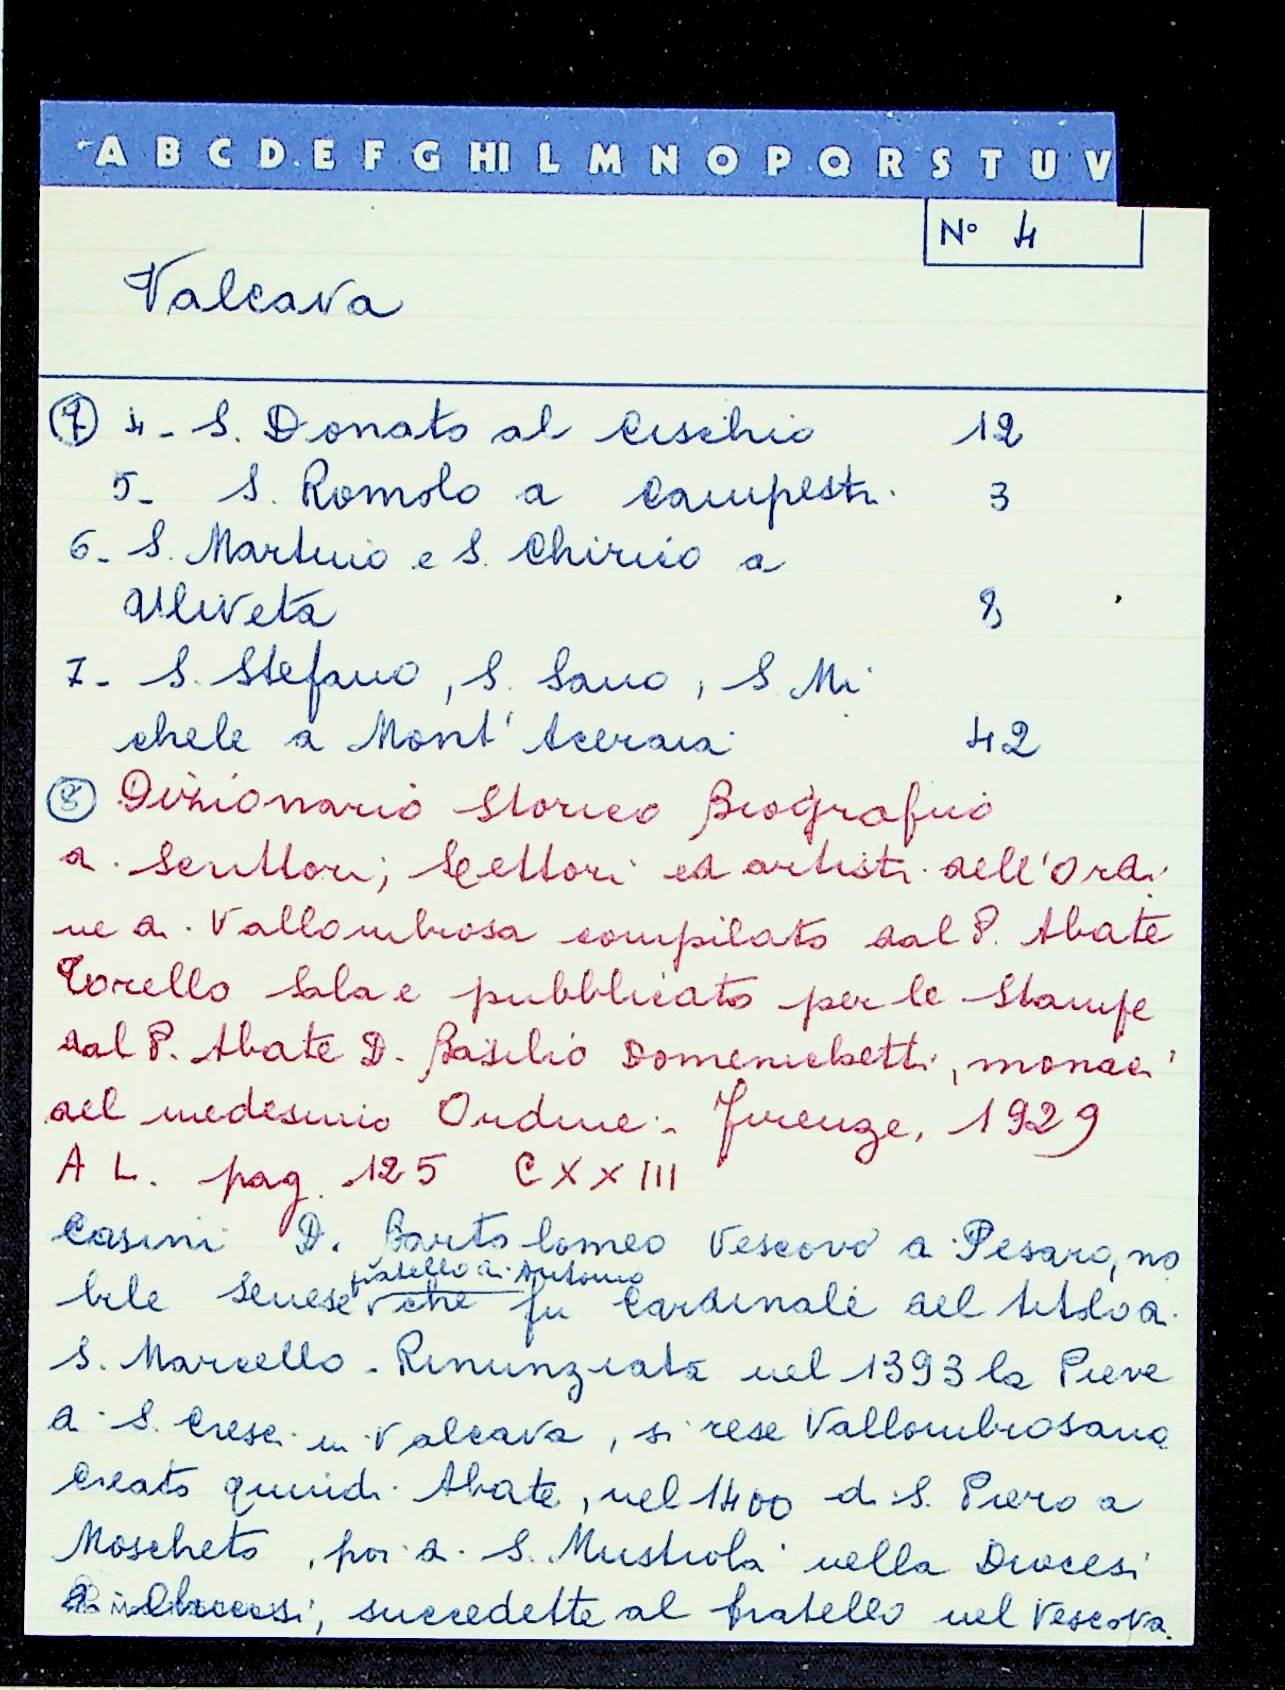 A B C D E F G HI L M N O P Q R S T U V
N° 4
Valcava
7 4- S. Donato al Cischio 12
5- S. Romolo a Campestri 3
6- S. Martino e S. Chirico a
Uliveta 8
7- S. Stefano, S. Sano, S. Mi
chele a Mont' Aceraia 42
8 Dizionario Storico Biografico
di Scrittori, Lettori ed artisti dell'Ordi
ne di Vallombrosa compilato dal P. Abate
Torello Sala e pubblicato per le Stampe
dal P. Abate D. Basilio Domenichetti, monaci
del medesimo Ordine - Firenze, 1929
A L. pag. 125 CXXIII
Casini D. Bartolomeo Vescovo di Pesaro, no
fratello di Antonio
bile senese che fu Cardinale del titolo di
S. Marcello - Rinunziata nel 1393 la Pieve
di S. Cresci in Valcava, si rese Vallombrosano
Creato quindi Abate, nel 1400 di S. Piero a
Moscheto, poi di S. Mustiola nella Diocesi
succedette al fratello nel Vescova